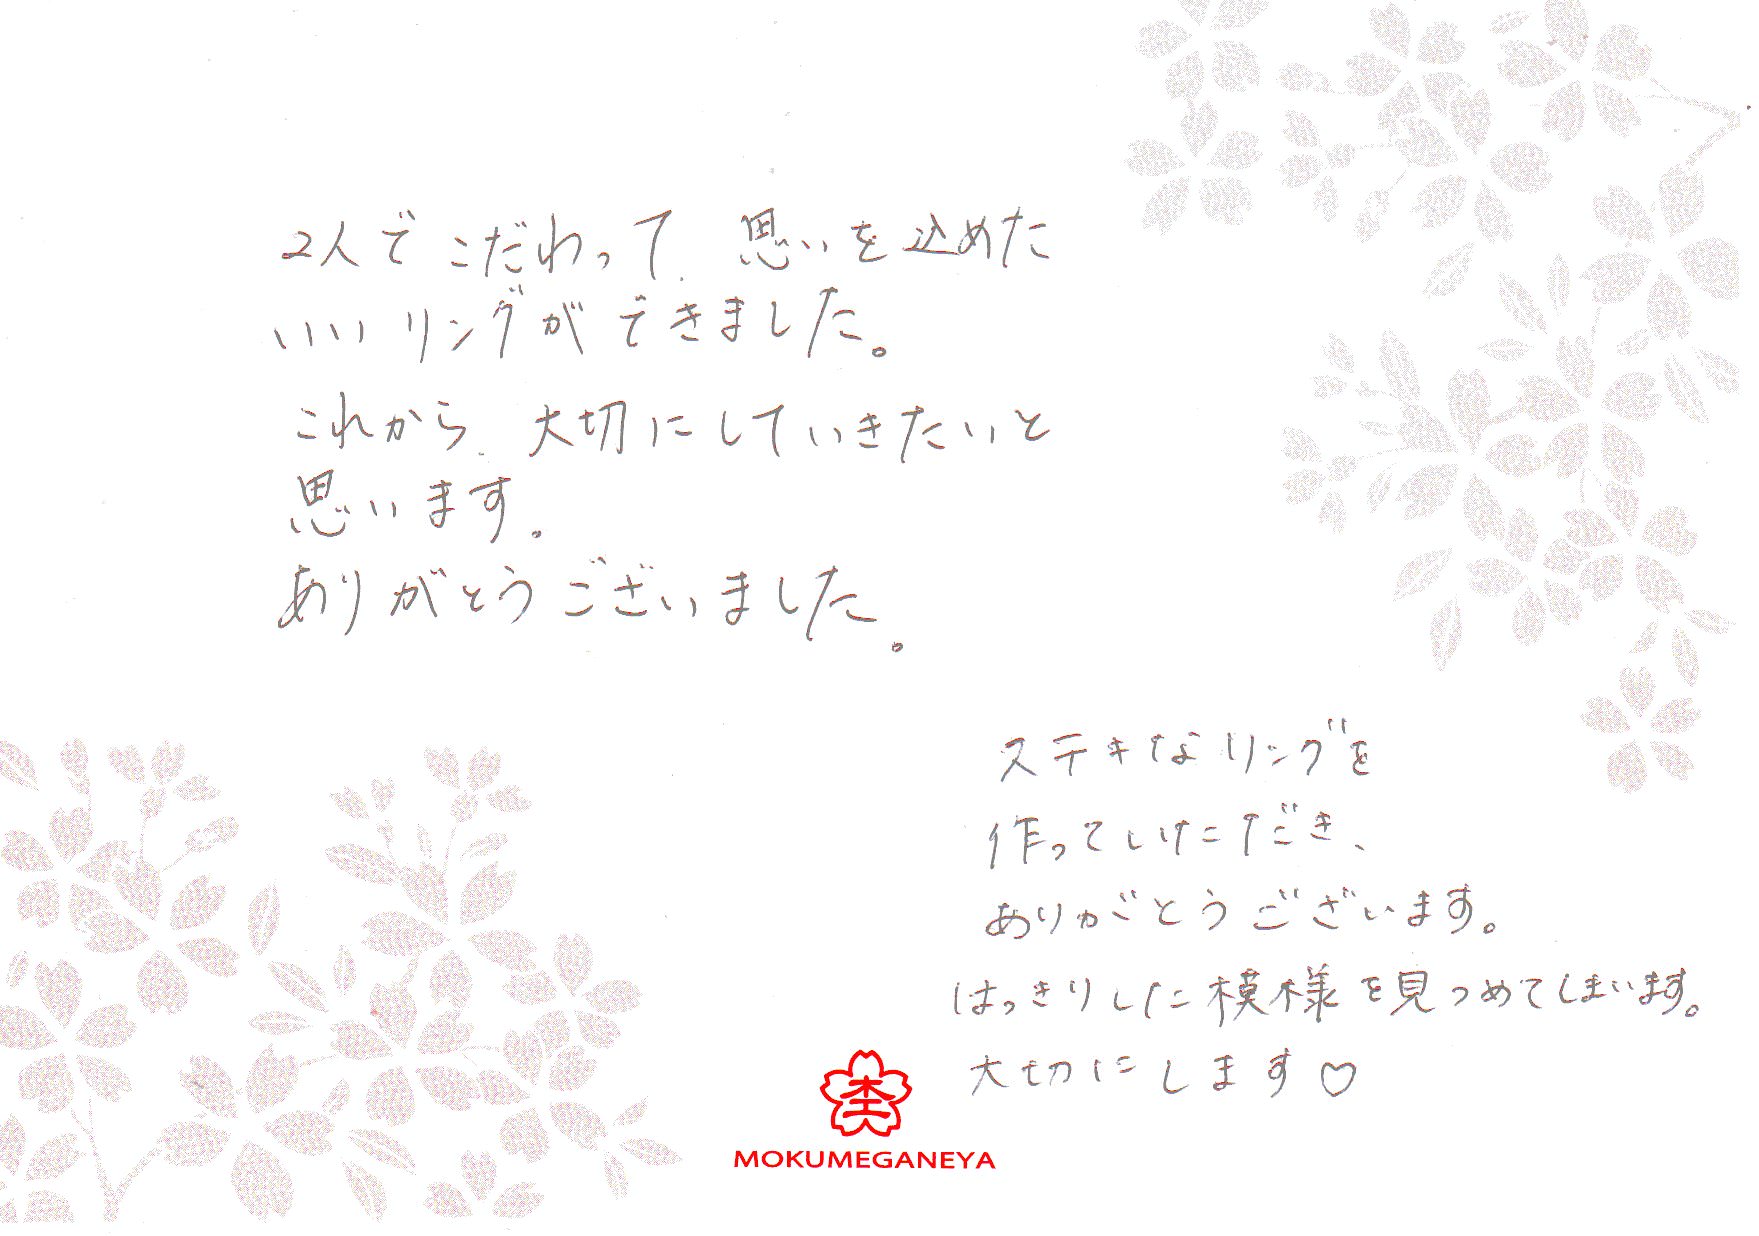 2人でこだわって、思いを込めた
いいリングができました。
これから、大切にしていきたいと
思います。
ありがとうございました。
ステキなリングを
作っていただき、
ありがとうございます。
はっきりした模様を見つめてしまいます。
大切にします♡
MOKUMEGANEYA